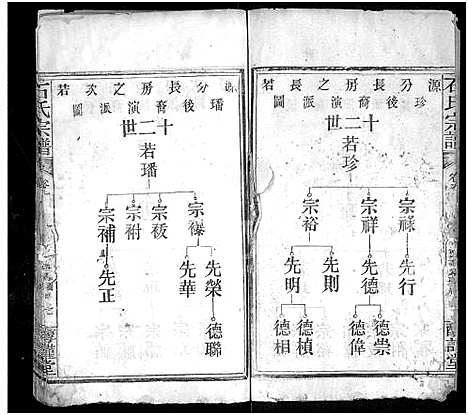 石氏宗譜
源分長房之次若
珍後裔演派圖
十二世
若珍
宗祿
宗祥
宗裕
先行
先德
先則
先明
德崇
德偉
德楨
德相
源分長房之次若
璠後裔演派圖
十二世
若璠
宗祿
宗毅
宗祔
宗補
先榮
先華
先正
德聯
石氏宗譜